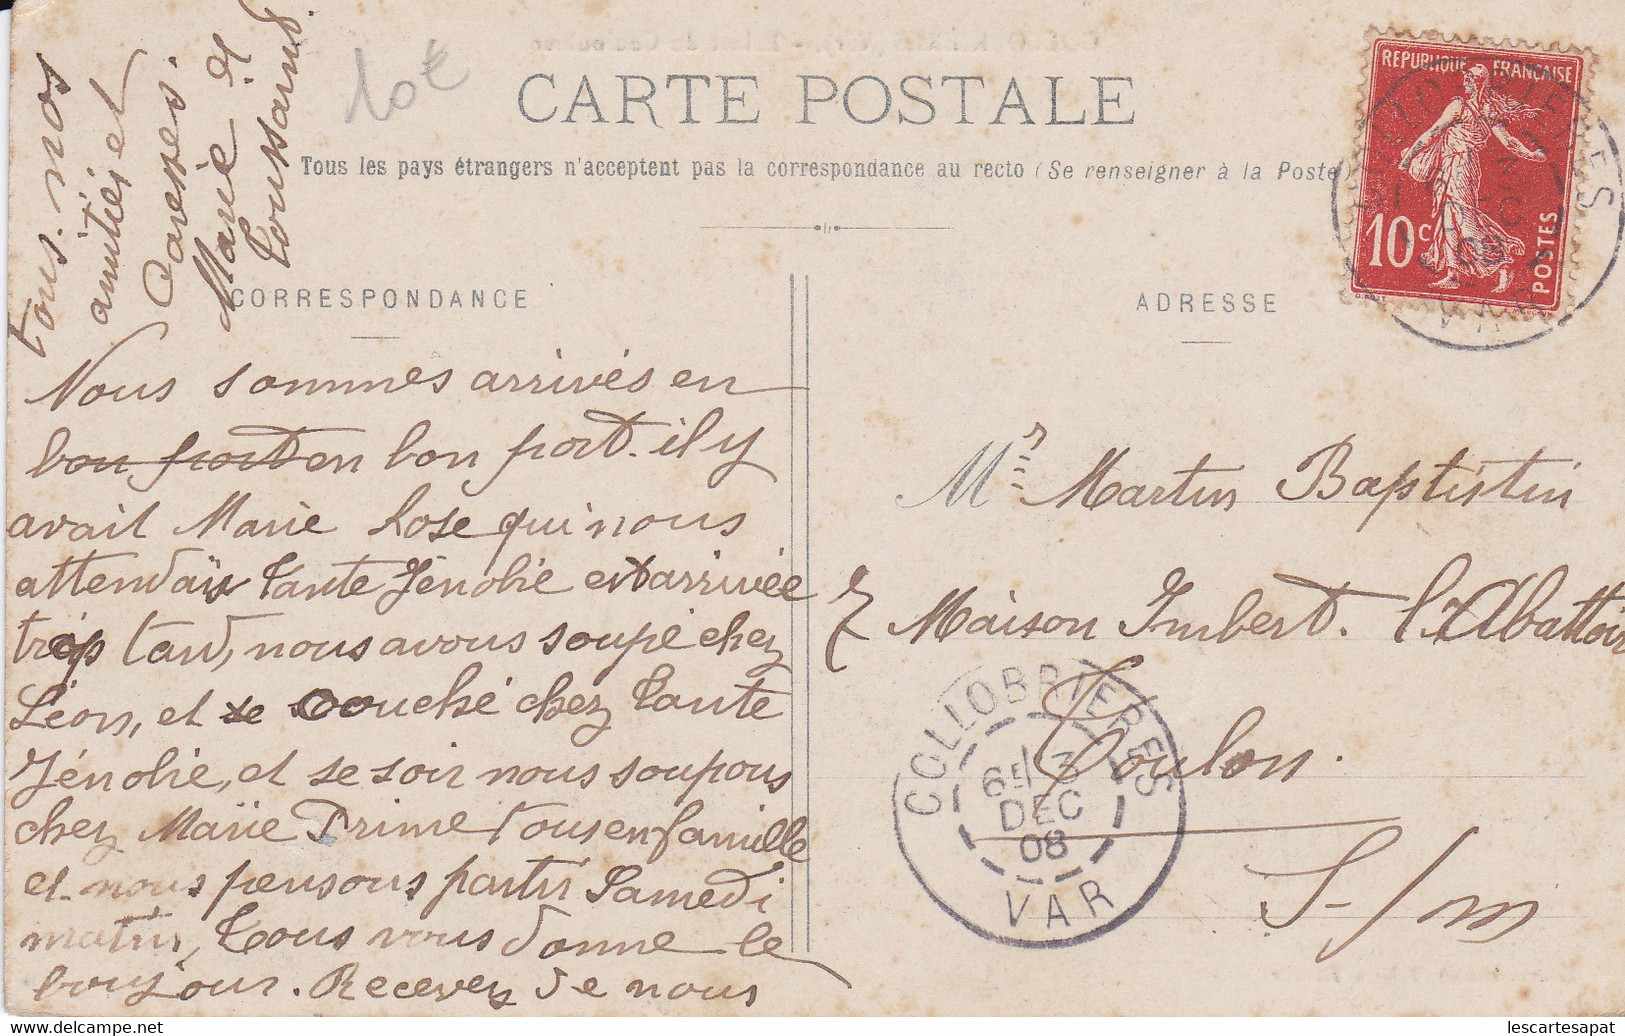 CARTE POSTALE
Tous les pays étrangers n'acceptent pas la correspondance au recto (Se renseigner à la Poste
10€
REPUBLIQUE FRANÇAISE
10c
POSTES
CORRESPONDANCE
ADRESSE
Nous sommes arrivés en
bon port en bon port. il y
avait Marie Rose qui nous
attendais Tante Jénolie est arrivée
trop tard, nous avous soupé chez
Léon, et couché chez Tante
Jénolie, et se soir nous soupons
chez Marie Prime tous en famille
et nous pensons partir Samedi
matin, Tous vous donne le
bonjour. Recevez de nous
tous. nos
amitiés et
Caresses.
Marie et
Toussaint.
Mr Martin Baptistin
Maison Imbert. l'Abattoir
Toulon.
S-/m
COLLOBRIERES
6E/3
DEC
08
VAR
lescartesapat